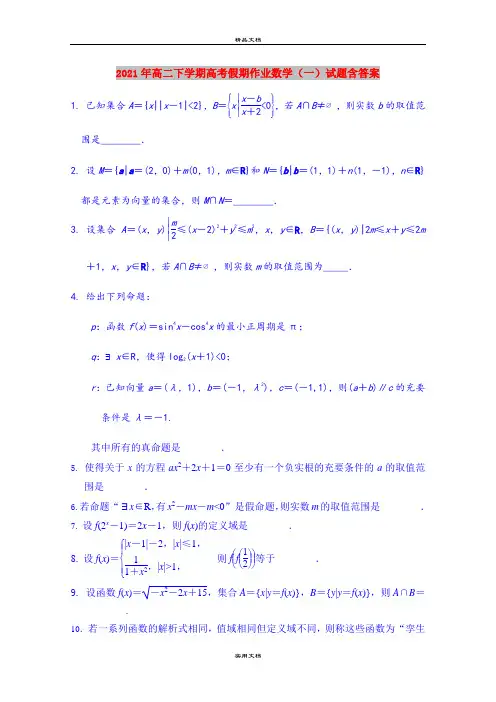 精品文档
2021年高二下学期高考假期作业数学（一）试题含答案
1. 已知集合A＝{x||x－1|<2}，B＝{x|(x－b)/(x＋2)<0}，若A∩B≠∅，则实数b的取值范
围是________．
2. 设M＝{a|a＝(2，0)＋m(0，1)，m∈R}和N＝{b|b＝(1，1)＋n(1，－1)，n∈R}
都是元素为向量的集合，则M∩N＝________．
3. 设集合 A＝(x，y)|m/2≤(x－2)²＋y²≤m²，x，y∈R，B＝{(x，y)|2m≤x＋y≤2m
＋1，x，y∈R}，若A∩B≠∅，则实数m的取值范围为_____．
4. 给出下列命题：
p：函数f(x)＝sin⁴x－cos⁴x的最小正周期是π；
q：∃x∈R，使得log₂(x＋1)<0；
r：已知向量a＝(λ，1)，b＝(－1，λ²)，c＝(－1,1)，则(a＋b)∥c的充要
条件是λ＝－1.
其中所有的真命题是________．
5. 使得关于x的方程ax²＋2x＋1＝0至少有一个负实根的充要条件的a的取值范
围是________．
6.若命题“∃x∈R，有x²－mx－m<0”是假命题，则实数m的取值范围是________．
7. 设f(2ˣ－1)＝2x－1，则f(x)的定义域是________．
8. 设f(x)＝{|x－1|－2，|x|≤1，1/(1＋x²)，|x|>1， 则f(f(1/2))等于________．
9. 设函数f(x)＝√(－x²－2x＋15)，集合A＝{x|y＝f(x)}，B＝{y|y＝f(x)}，则A∩B＝
________.
10. 若一系列函数的解析式相同，值域相同但定义域不同，则称这些函数为“孪生
实用文档